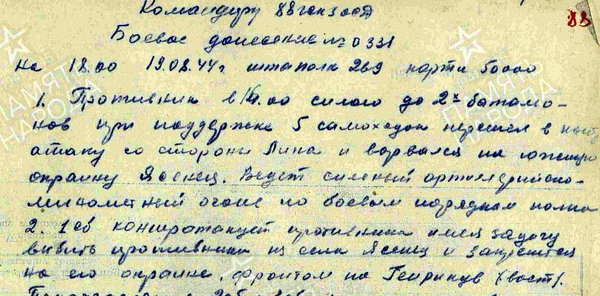 88
Командиру 88 гв сд
Боевое донесение № 0331
на 18.00 19.08.44г штаполк 269 карта 50000
1. Противник в 14.00 силою до 2х баталио-
нов при поддержке 5 самоходок перешел в
атаку со стороны Липа и ворвался на южную
окраину Ясенец. Ведет сильный артиллерийско-
минометный огонь по боевым порядкам полка
2. 1 сб контратакует противника имея задачу
выбить противника из села Ясенец и закрепится
на его окраине, фронтом на Генрикув (вост).
ПАМЯТЬ НАРОДА